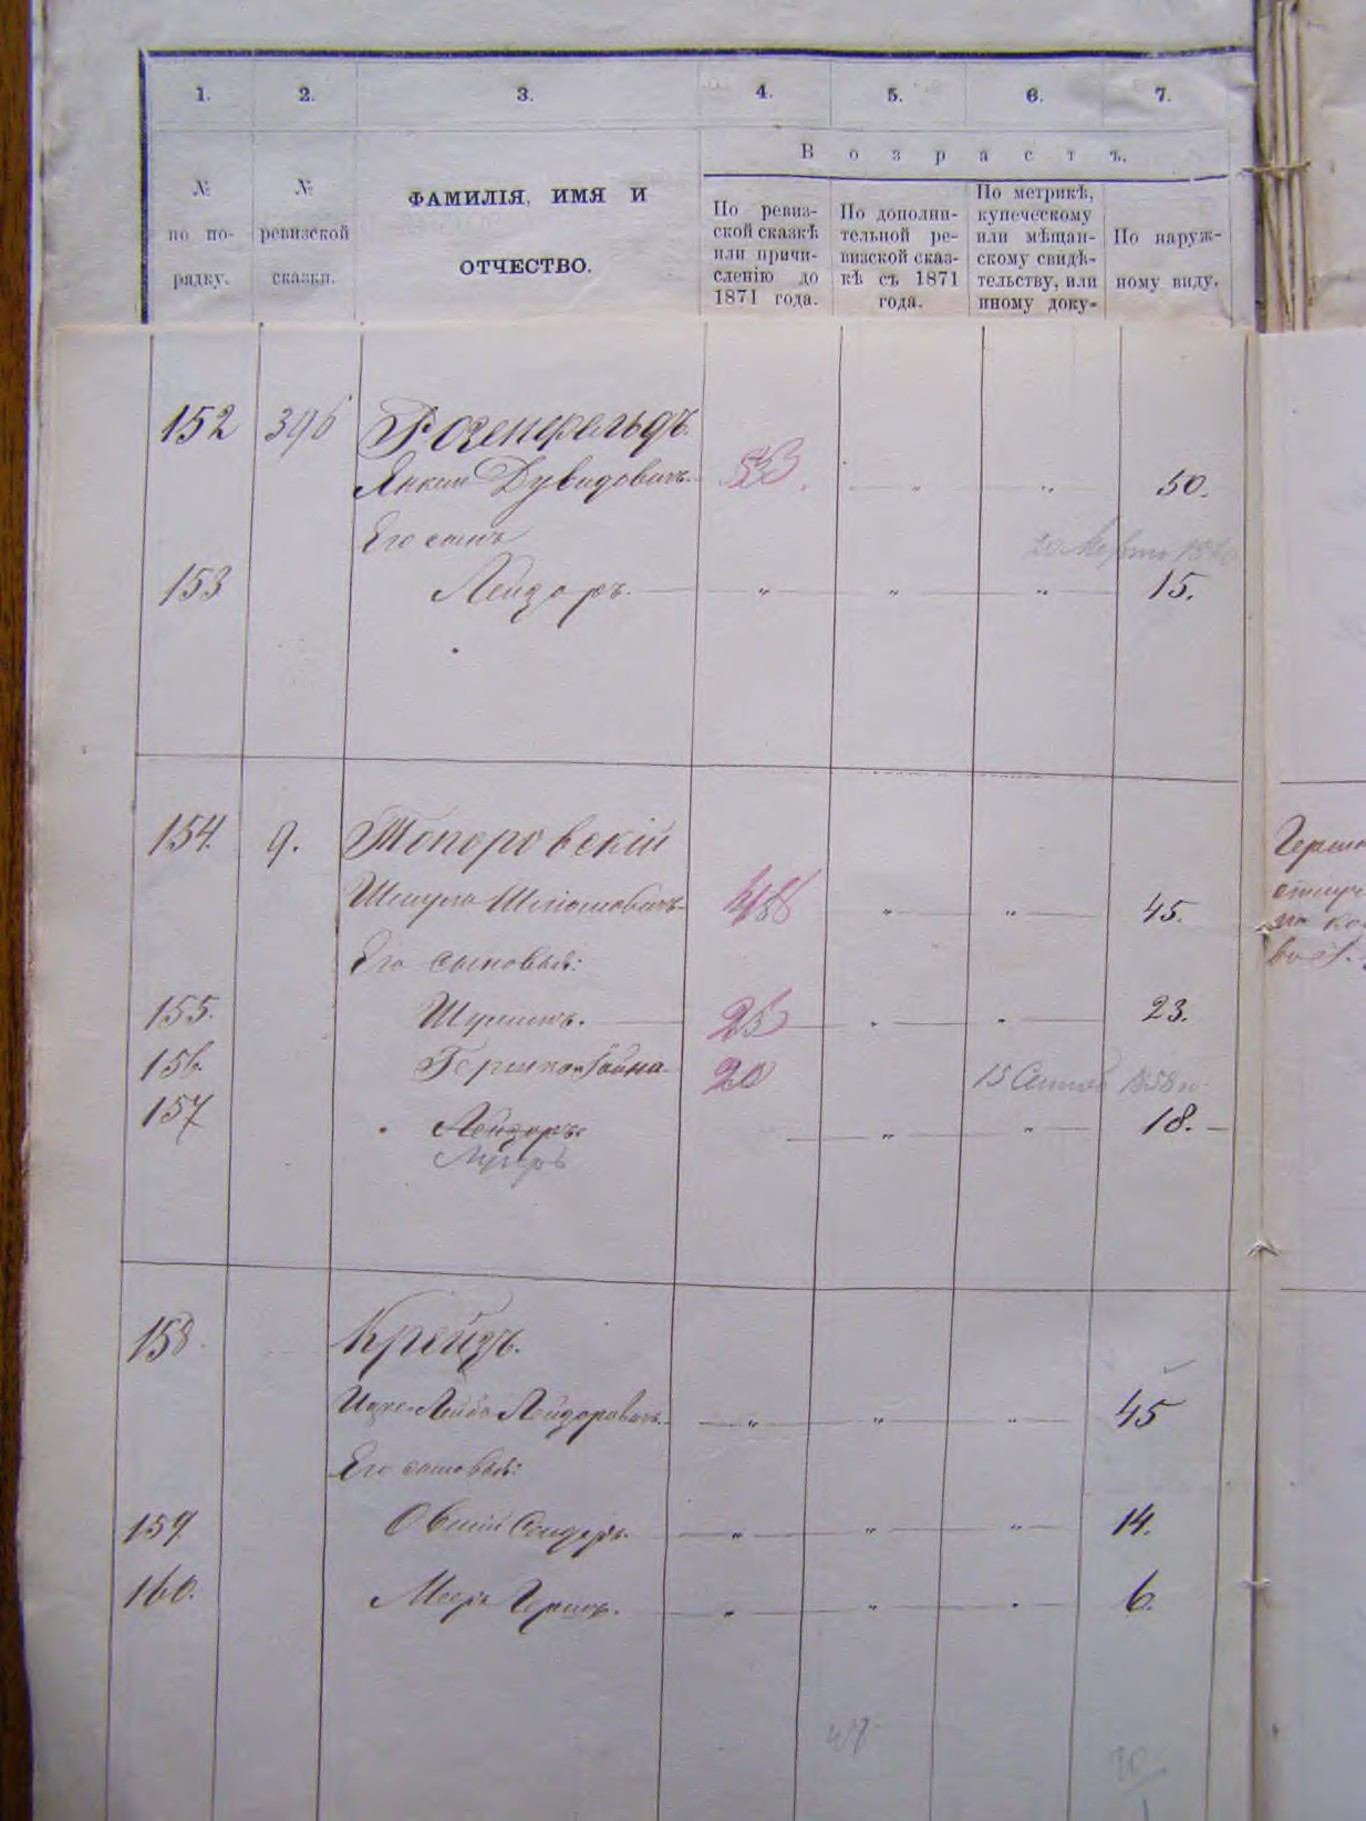 1. 2. 3. 4. 5. 6. 7.
Возрастъ.
№ по по-
рядку.
№
ревизской
сказки.
ФАМИЛІЯ, ИМЯ И
ОТЧЕСТВО.
По ревиз-
ской сказкѣ
или причи-
сленію до
1871 года.
По дополни-
тельной ре-
визской сказ-
кѣ съ 1871
года.
По метрикѣ,
купеческому
или мѣщан-
скому свидѣ-
тельству, или
иному доку-
По наруж-
ному виду.
152 396 Розенфельдъ
Янкель Дувидовичъ " " 50.
Его сынъ
153 Лейзоръ. " " " 15.
154. 9. Топоровскій
Шмуль " " 45.
Его сыновья:
155. 23 " " 23.
156. Гершко 20 15 1858
157 Лейзоръ. " " 18.
158 Крейзъ.
Ицко-Лейба Лейзоровичъ. " " " 45
Его сыновья:
159 Овшій Сендеръ. " " " 14.
160. Мееръ Гершъ. " " " 6.